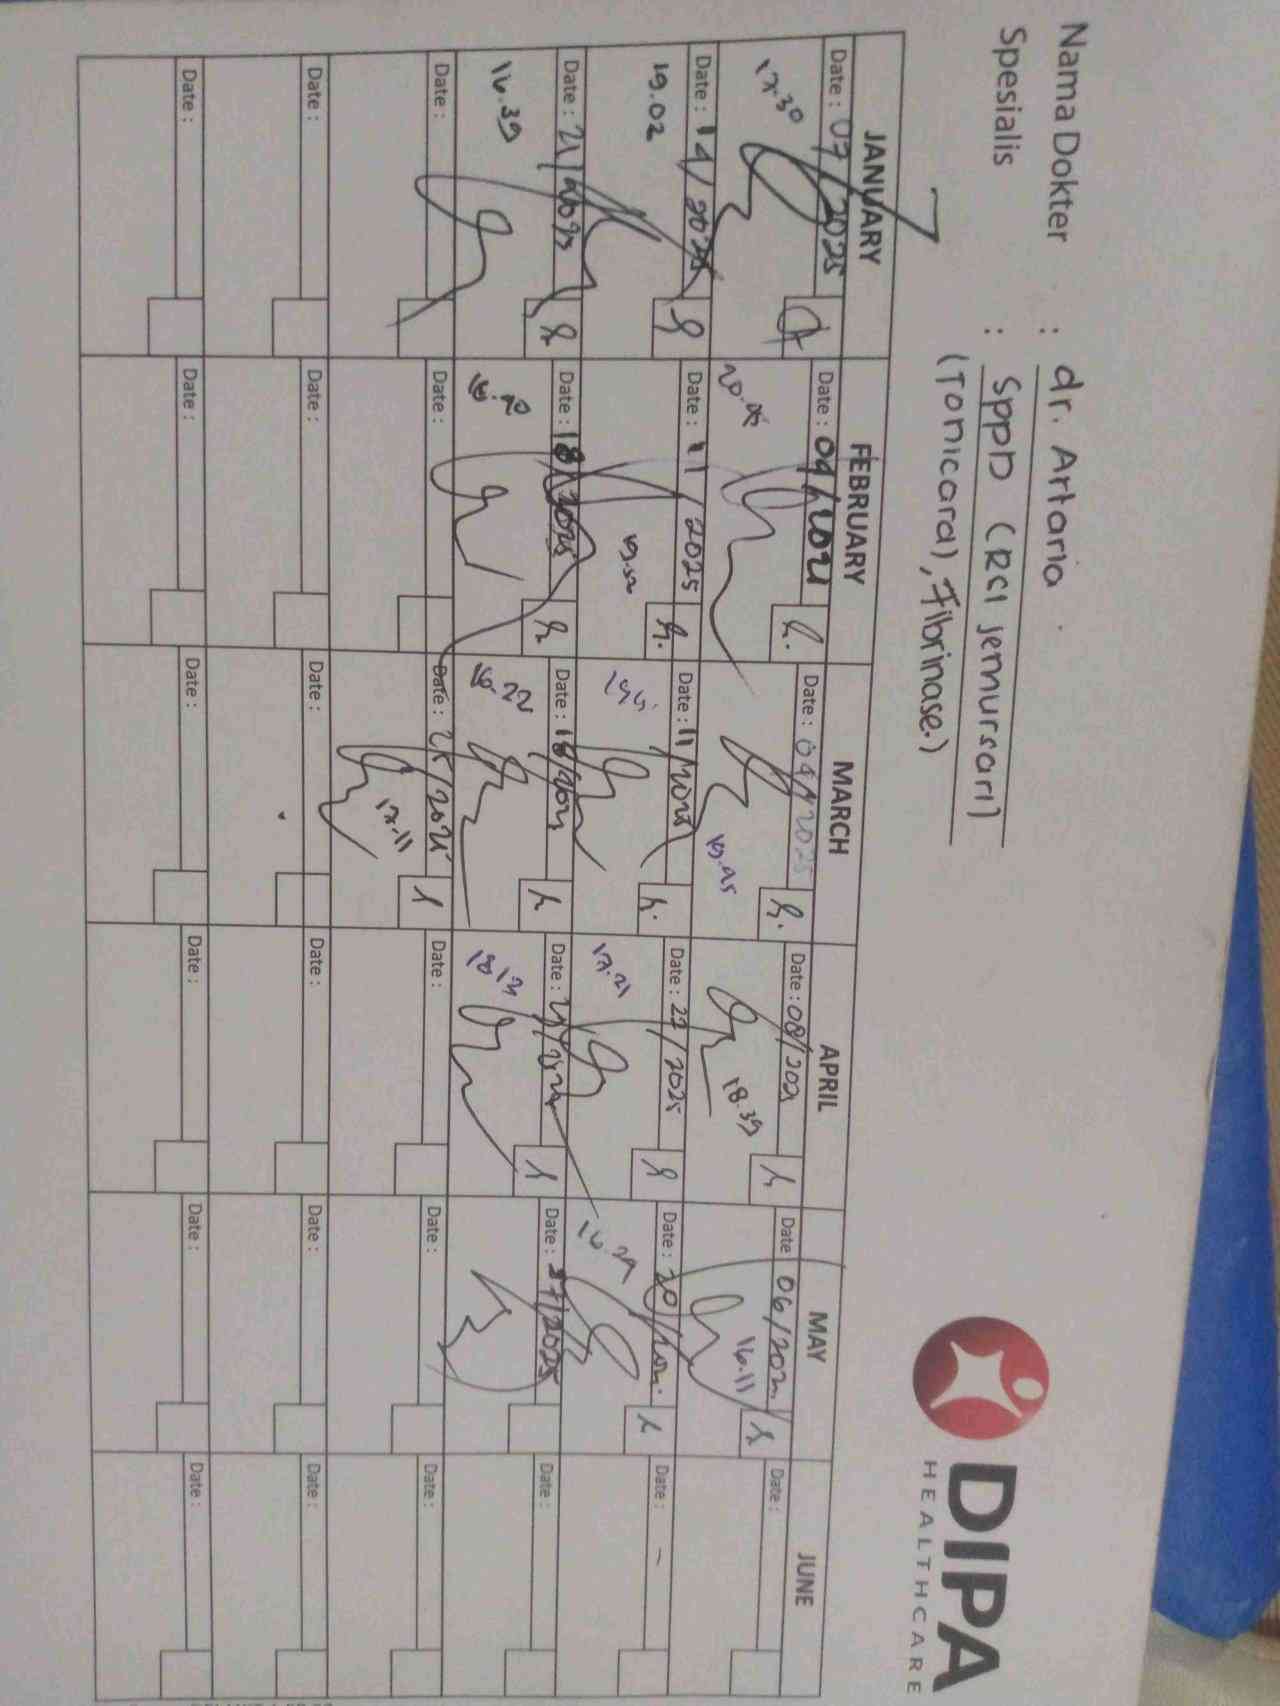 Nama Dokter : dr. Artaria
Spesialis : SppD (RCI jemursari)
(Tonicard), Fibrinase.)
DIPA
HEALTHCARE
JANUARY FEBRUARY MARCH APRIL MAY JUNE
Date : 07/2025 Date : 04/2025 Date : 04/2025 Date : 08/202 Date 06/202 Date :
17.30 20.05 19.45 18.39 16.11
Date : 14/2025 Date : 11/2025 Date : 11/2025 Date : 22/2025 Date : 20/202 Date : -
19.02 19.52 17.21 16.29
Date : 21/2025 Date : 18/2025 Date : 18/2025 Date : Date : 27/2025 Date :
16.39 16.22 18.13
Date : Date : Date : 25/2025 Date : Date : Date :
17.11
Date : Date : Date : Date : Date : Date :
Date : Date : Date : Date : Date : Date :